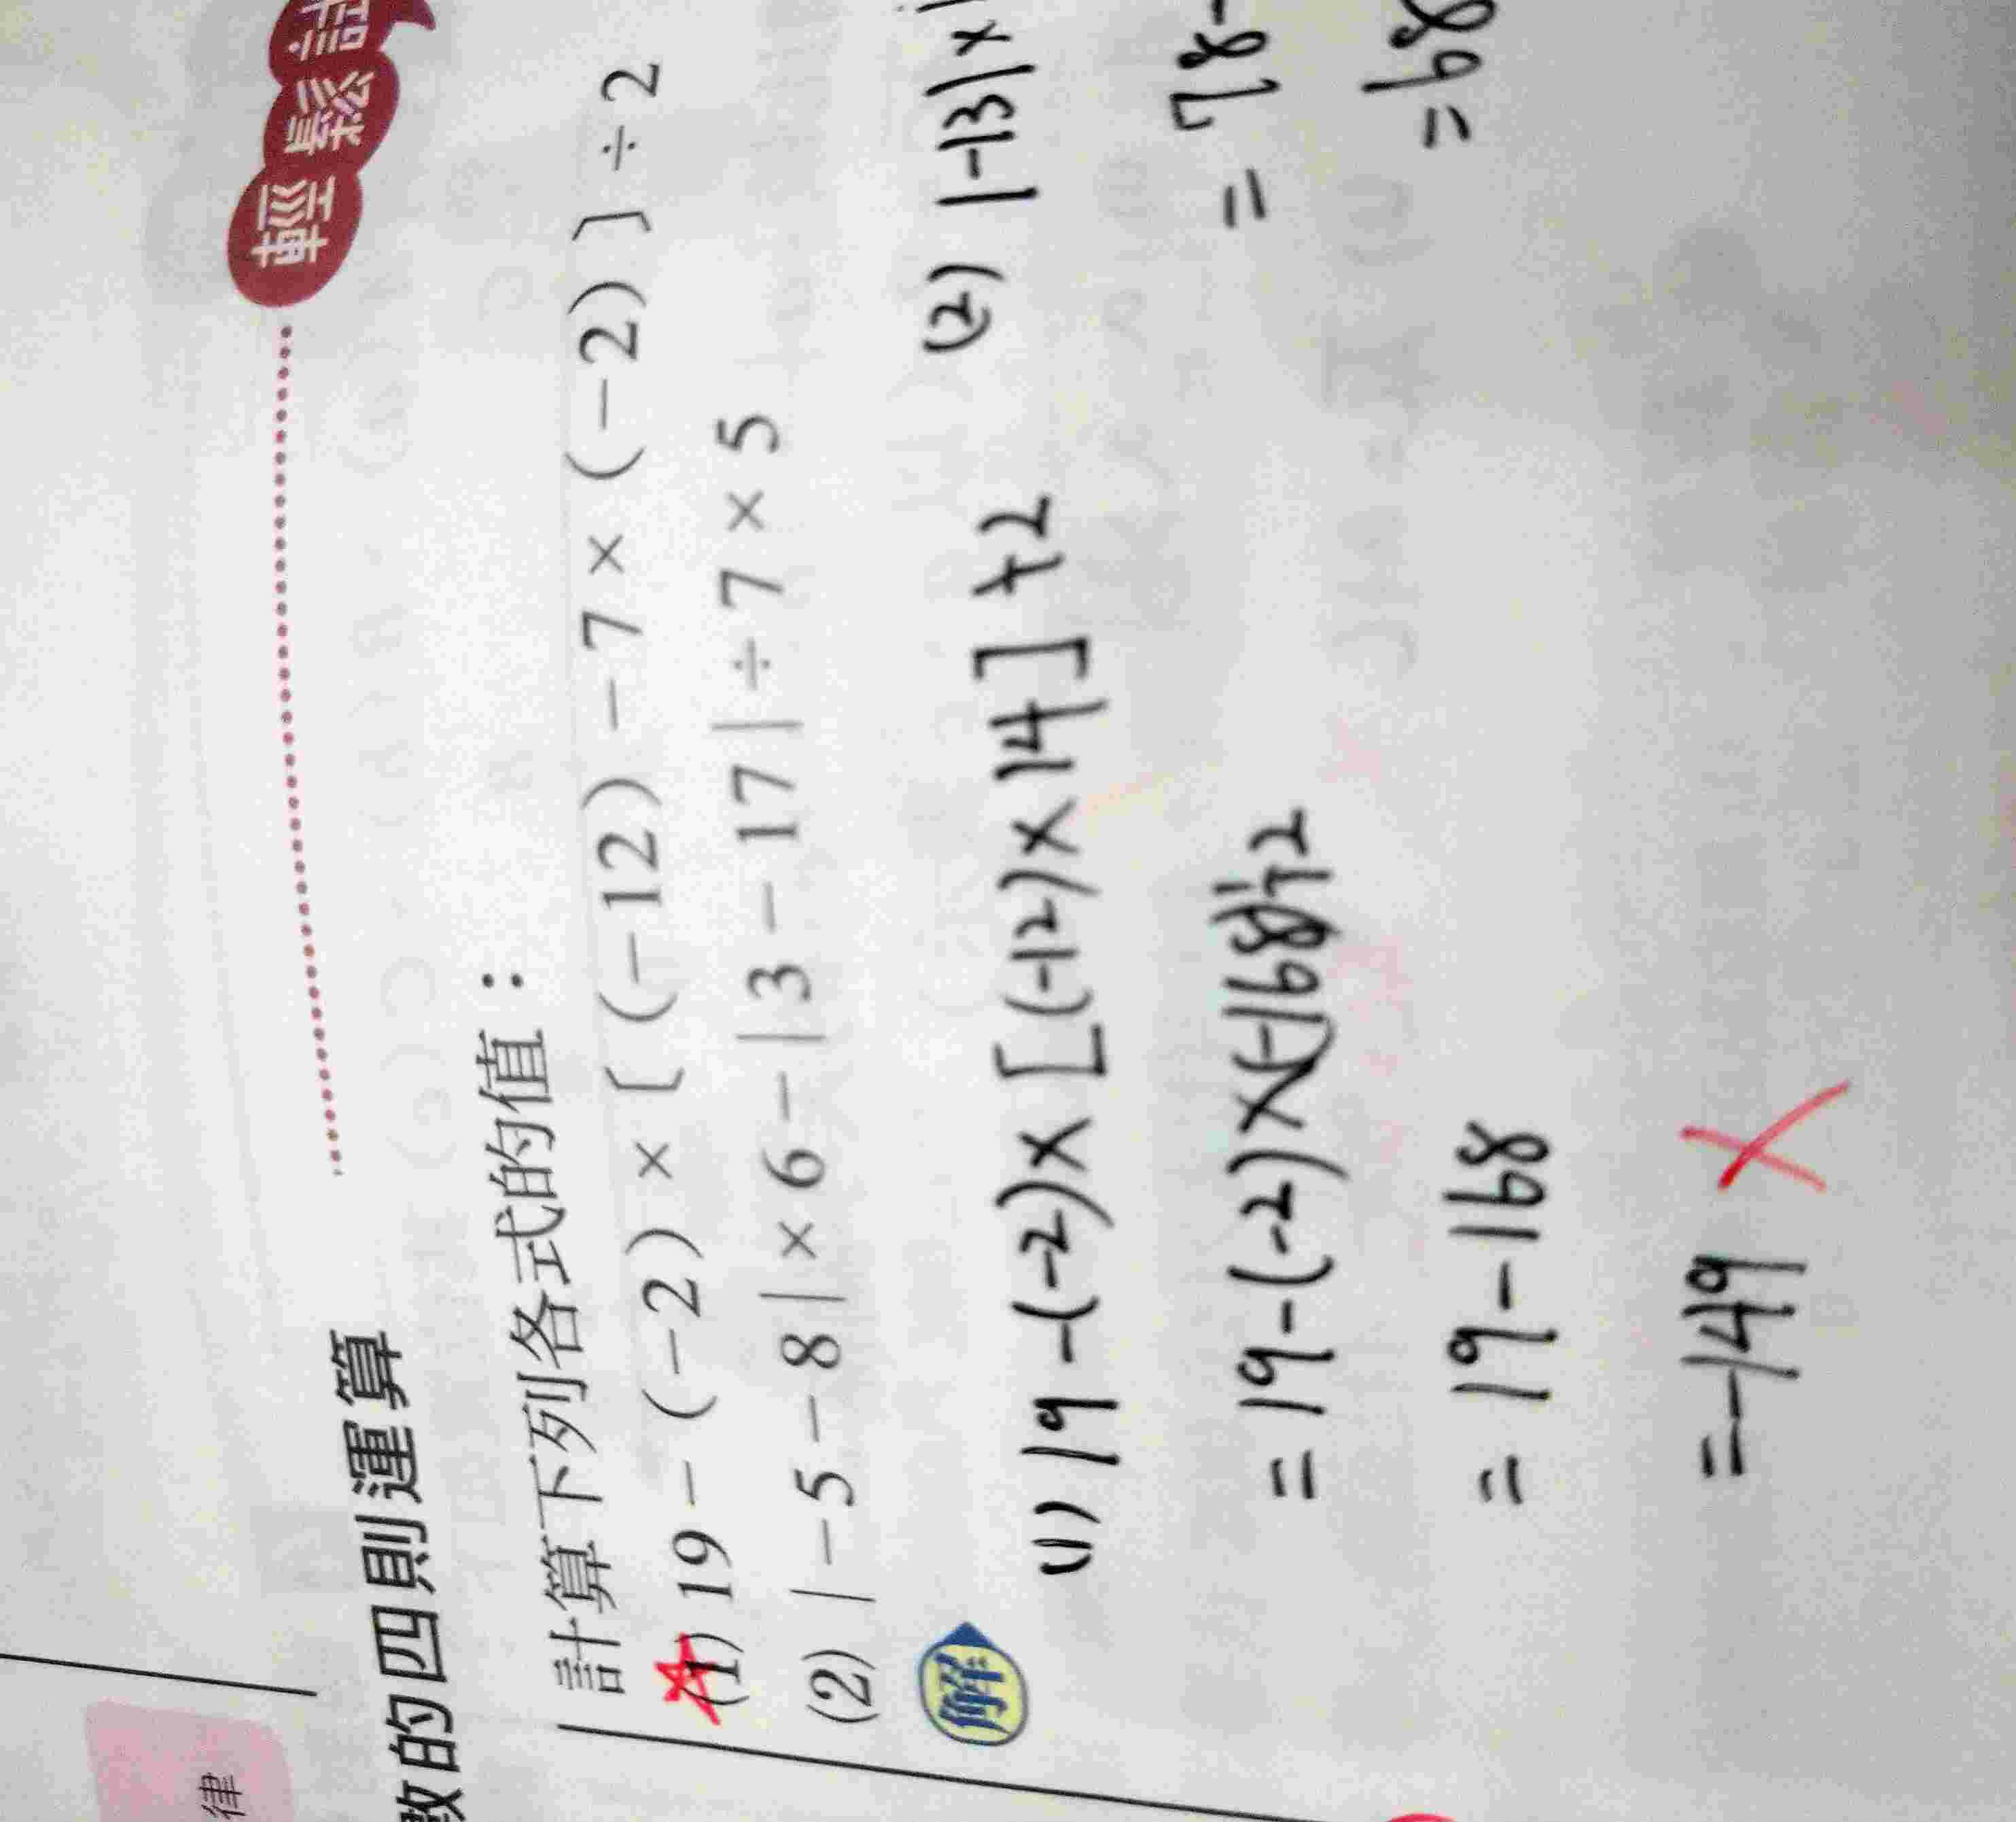 律
數的四則運算
輕鬆
計算下列各式的值：
(1) 19－(－2)×〔(－12)－7×(－2)〕÷2
(2) |－5－8|×6－|3－17|÷7×5
解
(1) 19-(-2)×[(-12)×14]÷2
=19-(-2)×(-168)÷2
=19-168
=-149
(2) |-13|×
=78-
=68